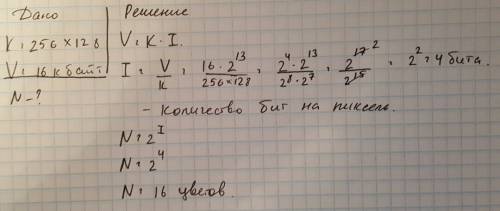 Дано
K = 256 × 128
V = 16 кбайт
N - ?
Решение
V = K · I.
I = V/K = 16 · 2^13 / 256 × 128 = 2^4 · 2^13 / 2^8 · 2^7 = 2^17 2 / 2^15 = 2^2 = 4 бита.
- количество бит на пиксель.
N = 2^I
N = 2^4
N = 16 цветов.